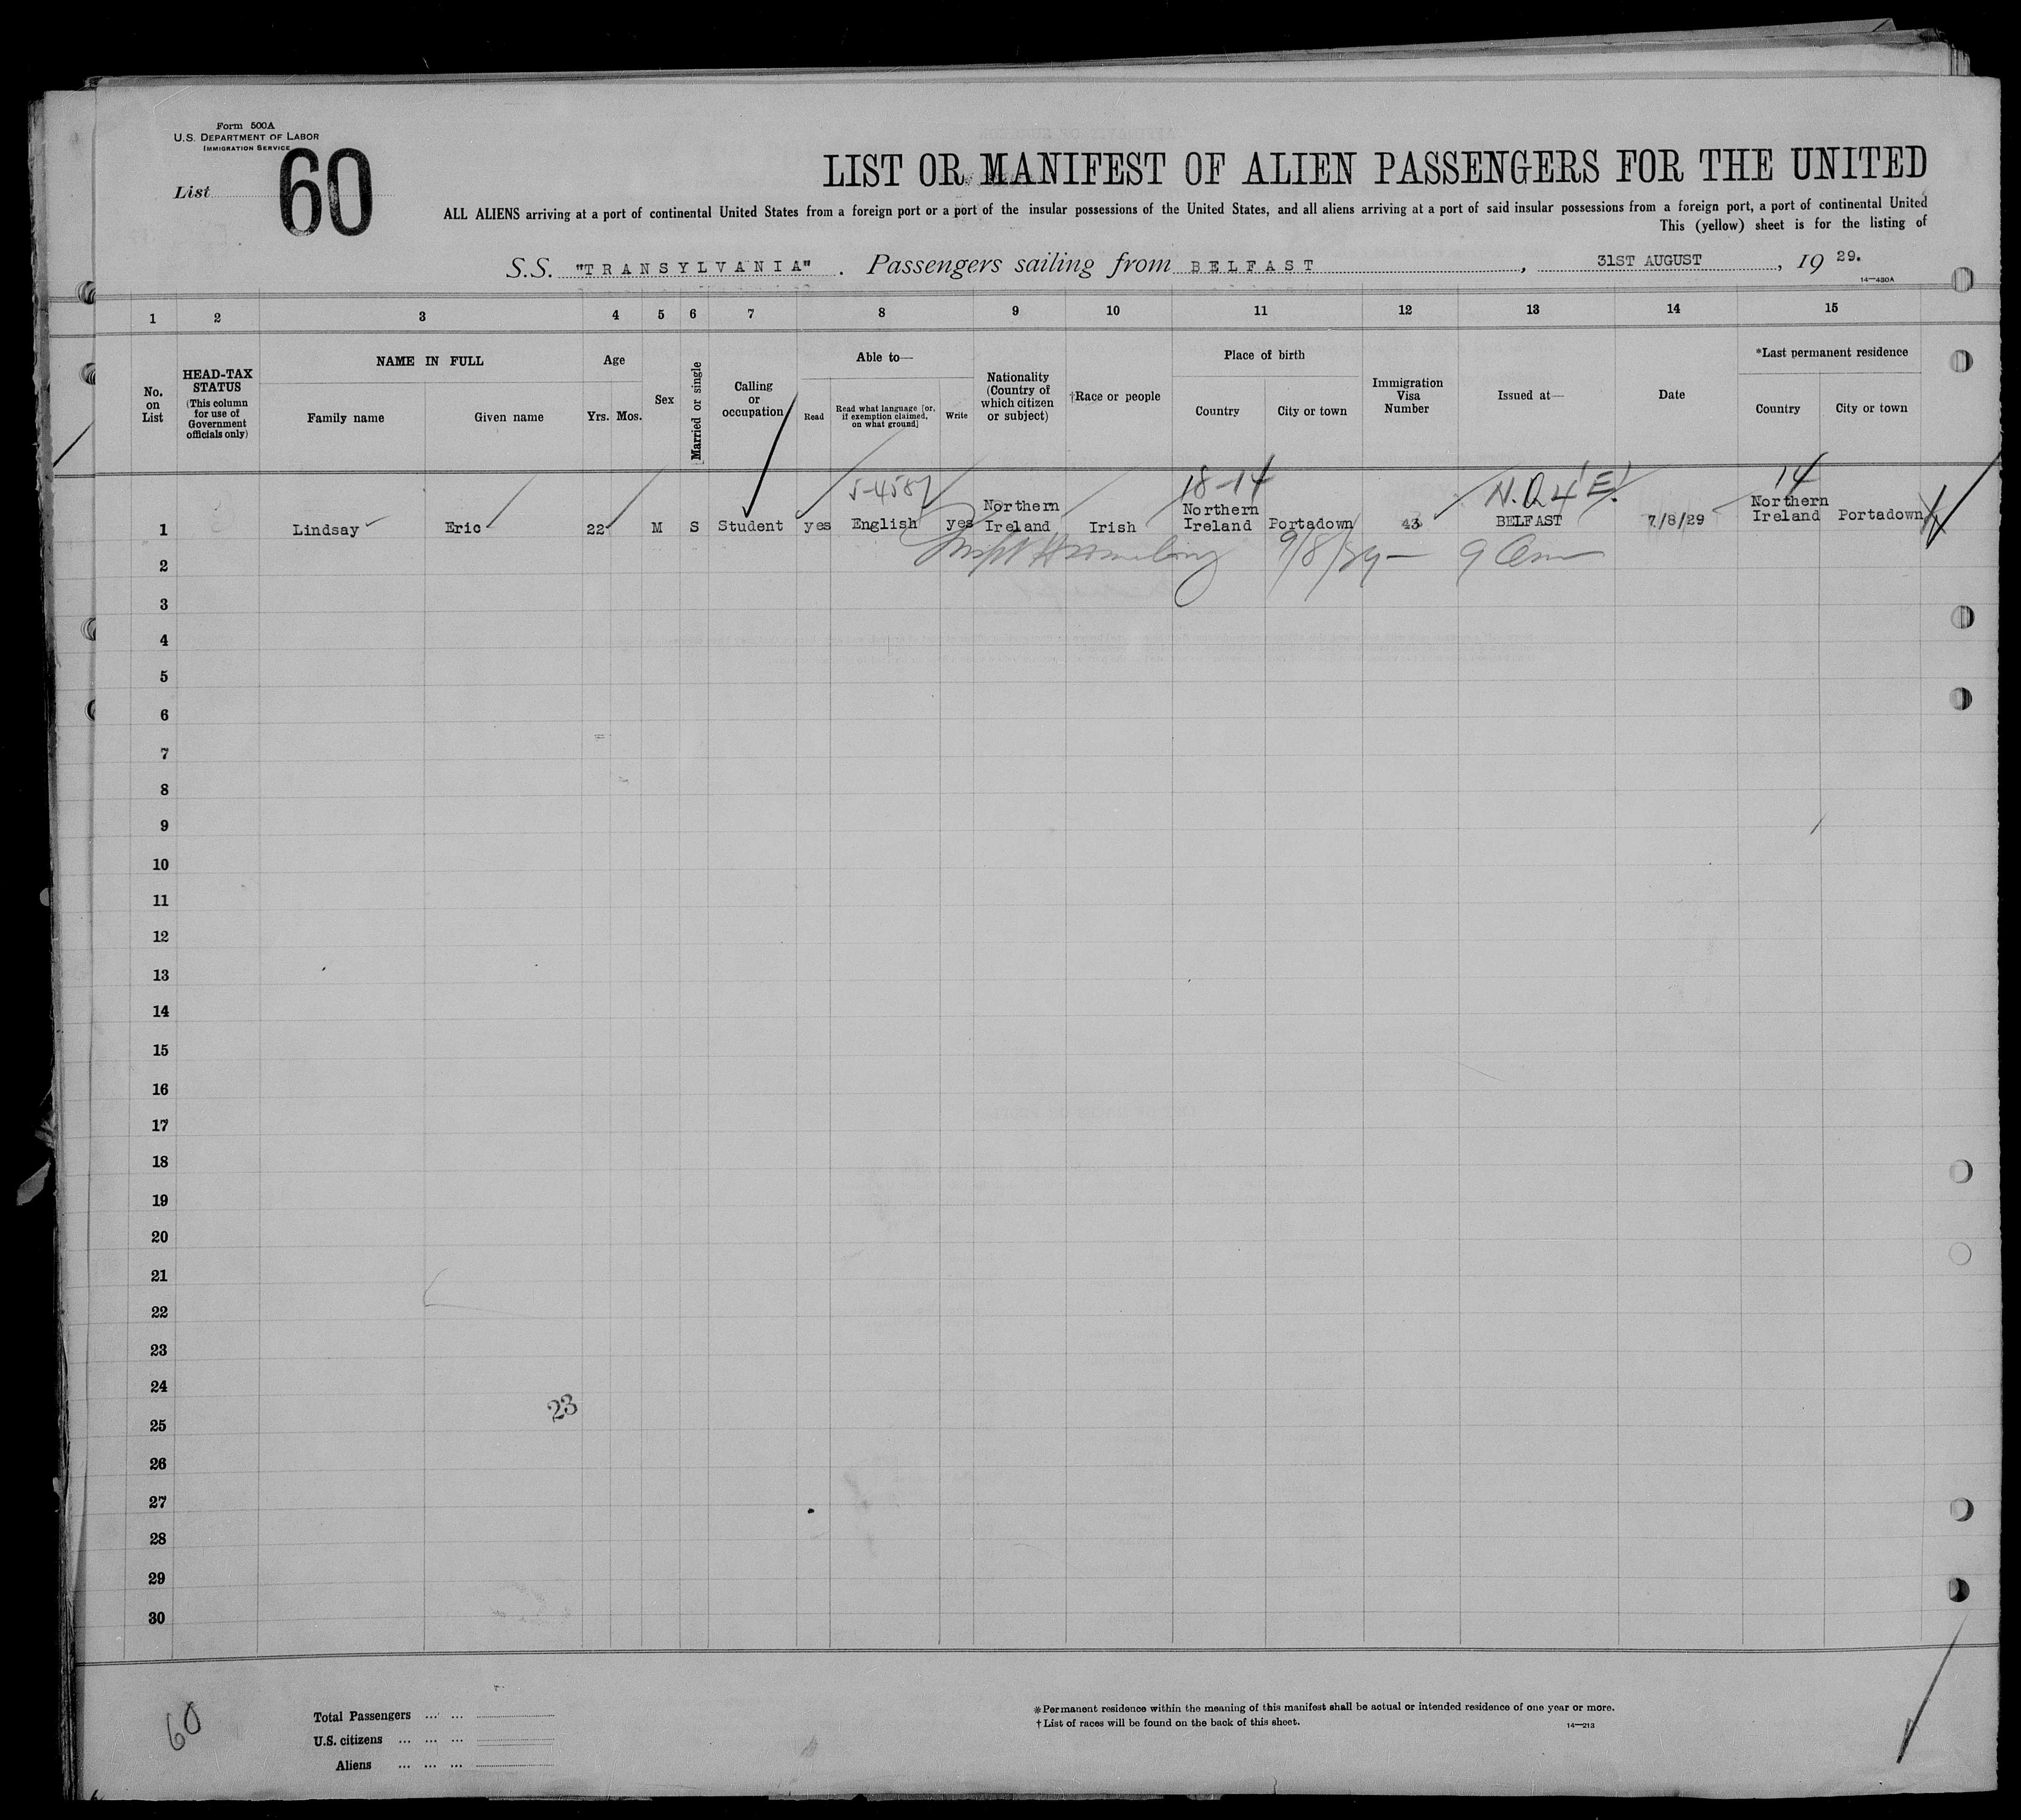 Form 500A
U.S. DEPARTMENT OF LABOR
IMMIGRATION SERVICE
List 60
LIST OR MANIFEST OF ALIEN PASSENGERS FOR THE UNITED
ALL ALIENS arriving at a port of continental United States from a foreign port or a port of the insular possessions of the United States, and all aliens arriving at a port of said insular possessions from a foreign port, a port of continental United
This (yellow) sheet is for the listing of
S.S. "TRANSYLVANIA". Passengers sailing from BELFAST, 31ST AUGUST, 1929.
14—430A
1 2 3 4 5 6 7 8 9 10 11 12 13 14 15
No. on List
HEAD-TAX STATUS (This column for use of Government officials only)
NAME IN FULL
Family name Given name
Age
Yrs. Mos.
Sex
Married or single
Calling or occupation
Able to—
Read
Read what language [or, if exemption claimed, on what ground]
Write
Nationality (Country of which citizen or subject)
†Race or people
Place of birth
Country City or town
Immigration Visa Number
Issued at—
Date
*Last permanent residence
Country City or town
18-14 14
1 Lindsay Eric 22 M S Student yes English yes Northern Ireland Irish Northern Ireland Portadown 43 BELFAST 7/8/29 Northern Ireland Portadown
9/8/29
2
3
4
5
6
7
8
9
10
11
12
13
14
15
16
17
18
19
20
21
22
23
24
23
25
26
27
28
29
30
60
Total Passengers ... ...
U.S. citizens ... ... ...
Aliens ... ... ...
*Permanent residence within the meaning of this manifest shall be actual or intended residence of one year or more.
†List of races will be found on the back of this sheet.
14—213